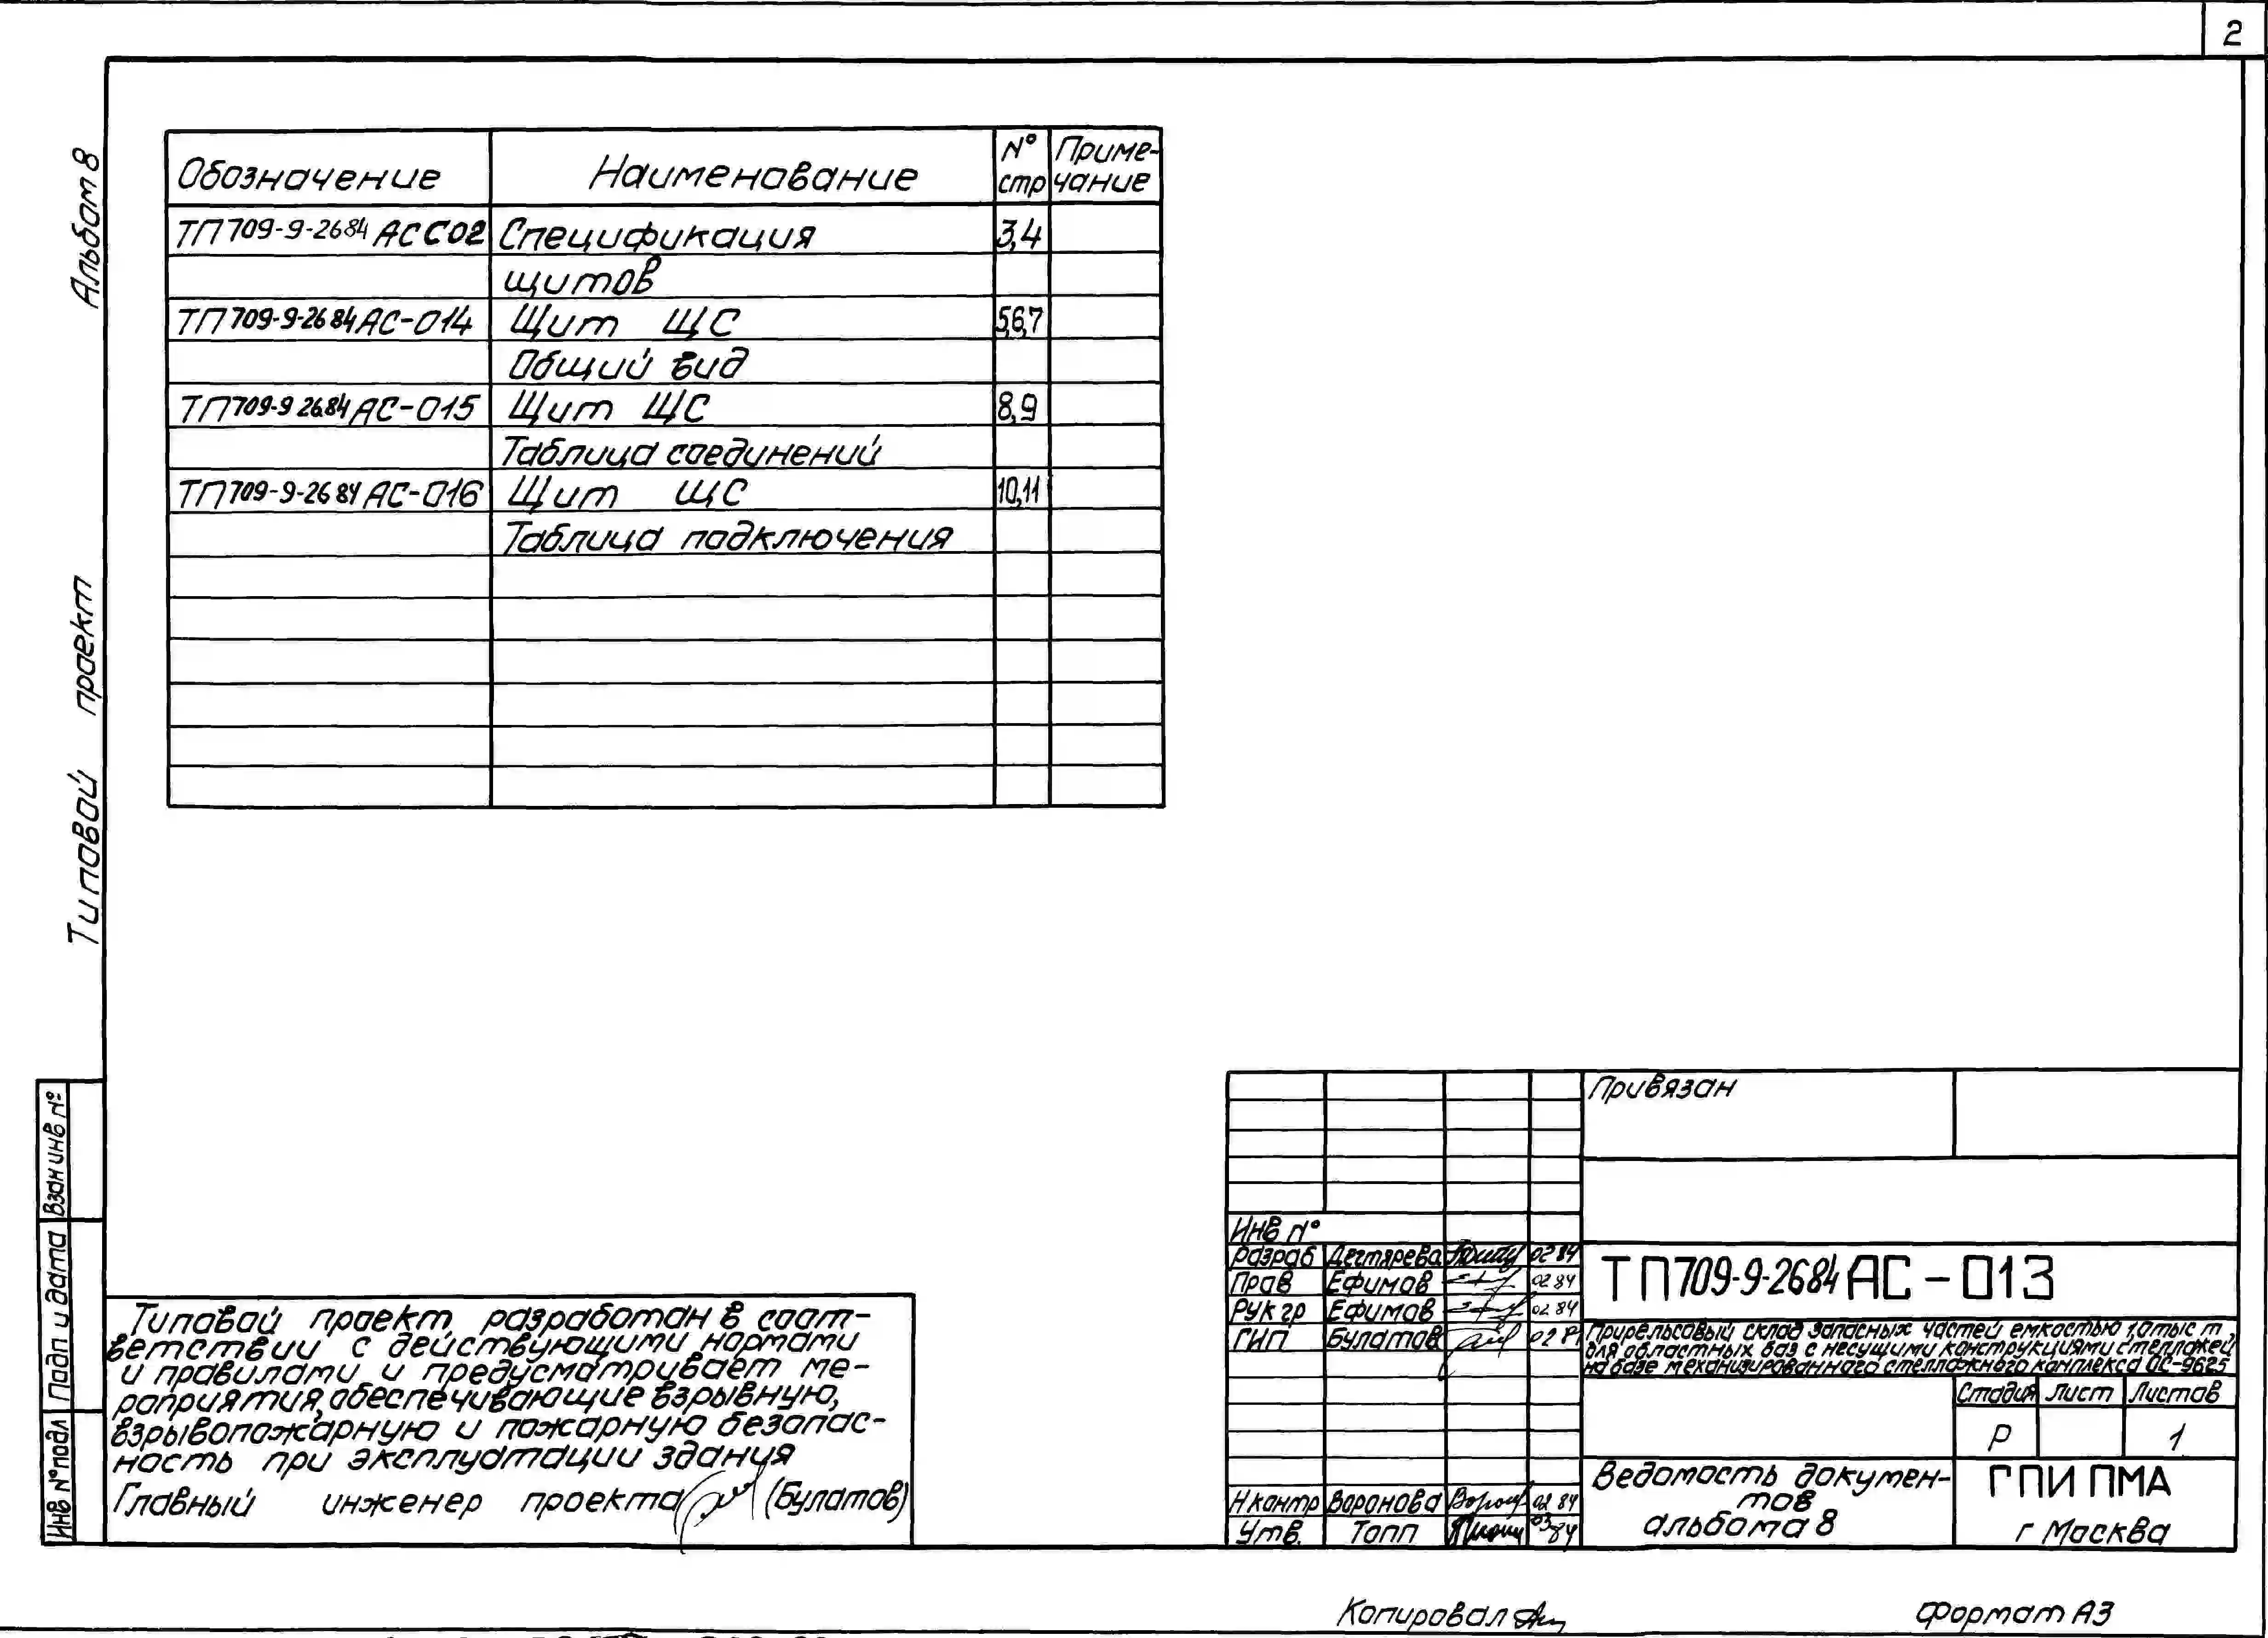 2
Альбом 8
Типовой проект
Обозначение Наименование N° стр Приме-чание
ТП 709-9-26 84 АС СО2 Спецификация 3,4
щитов
ТП 709-9-26 84 АС-014 Щит ЩС 5,6,7
Общий вид
ТП 709-9 26.84 АС-015 Щит ЩС 8,9
Таблица соединений
ТП 709-9-26 84 АС-016 Щит ЩС 10,11
Таблица подключения
Взам инв №
Подп и дата
Инв № подл
Типовой проект разработан в соот-
ветствии с действующими нормами
и правилами и предусматривает ме-
роприятия, обеспечивающие взрывную,
взрывопожарную и пожарную безопас-
ность при эксплуатации здания
Главный инженер проекта (Булатов)
Привязан
Инв N°
Разраб Дегтярева 02 84
Пров Ефимов 02 84
Рук гр Ефимов 02 84
ГИП Булатов 02 84
Н контр Воронова 02 84
Утв. Топп 03 84
ТП 709-9-26 84 АС-013
Прирельсовый склад запасных частей емкостью 1,0 тыс т
для областных баз с несущими конструкциями стеллажей
на базе механизированного стеллажного комплекса ОС-9625
Стадия Лист Листов
Р 1
Ведомость докумен-
тов
альбома 8
ГПИ ПМА
г Москва
Копировал
Формат А3